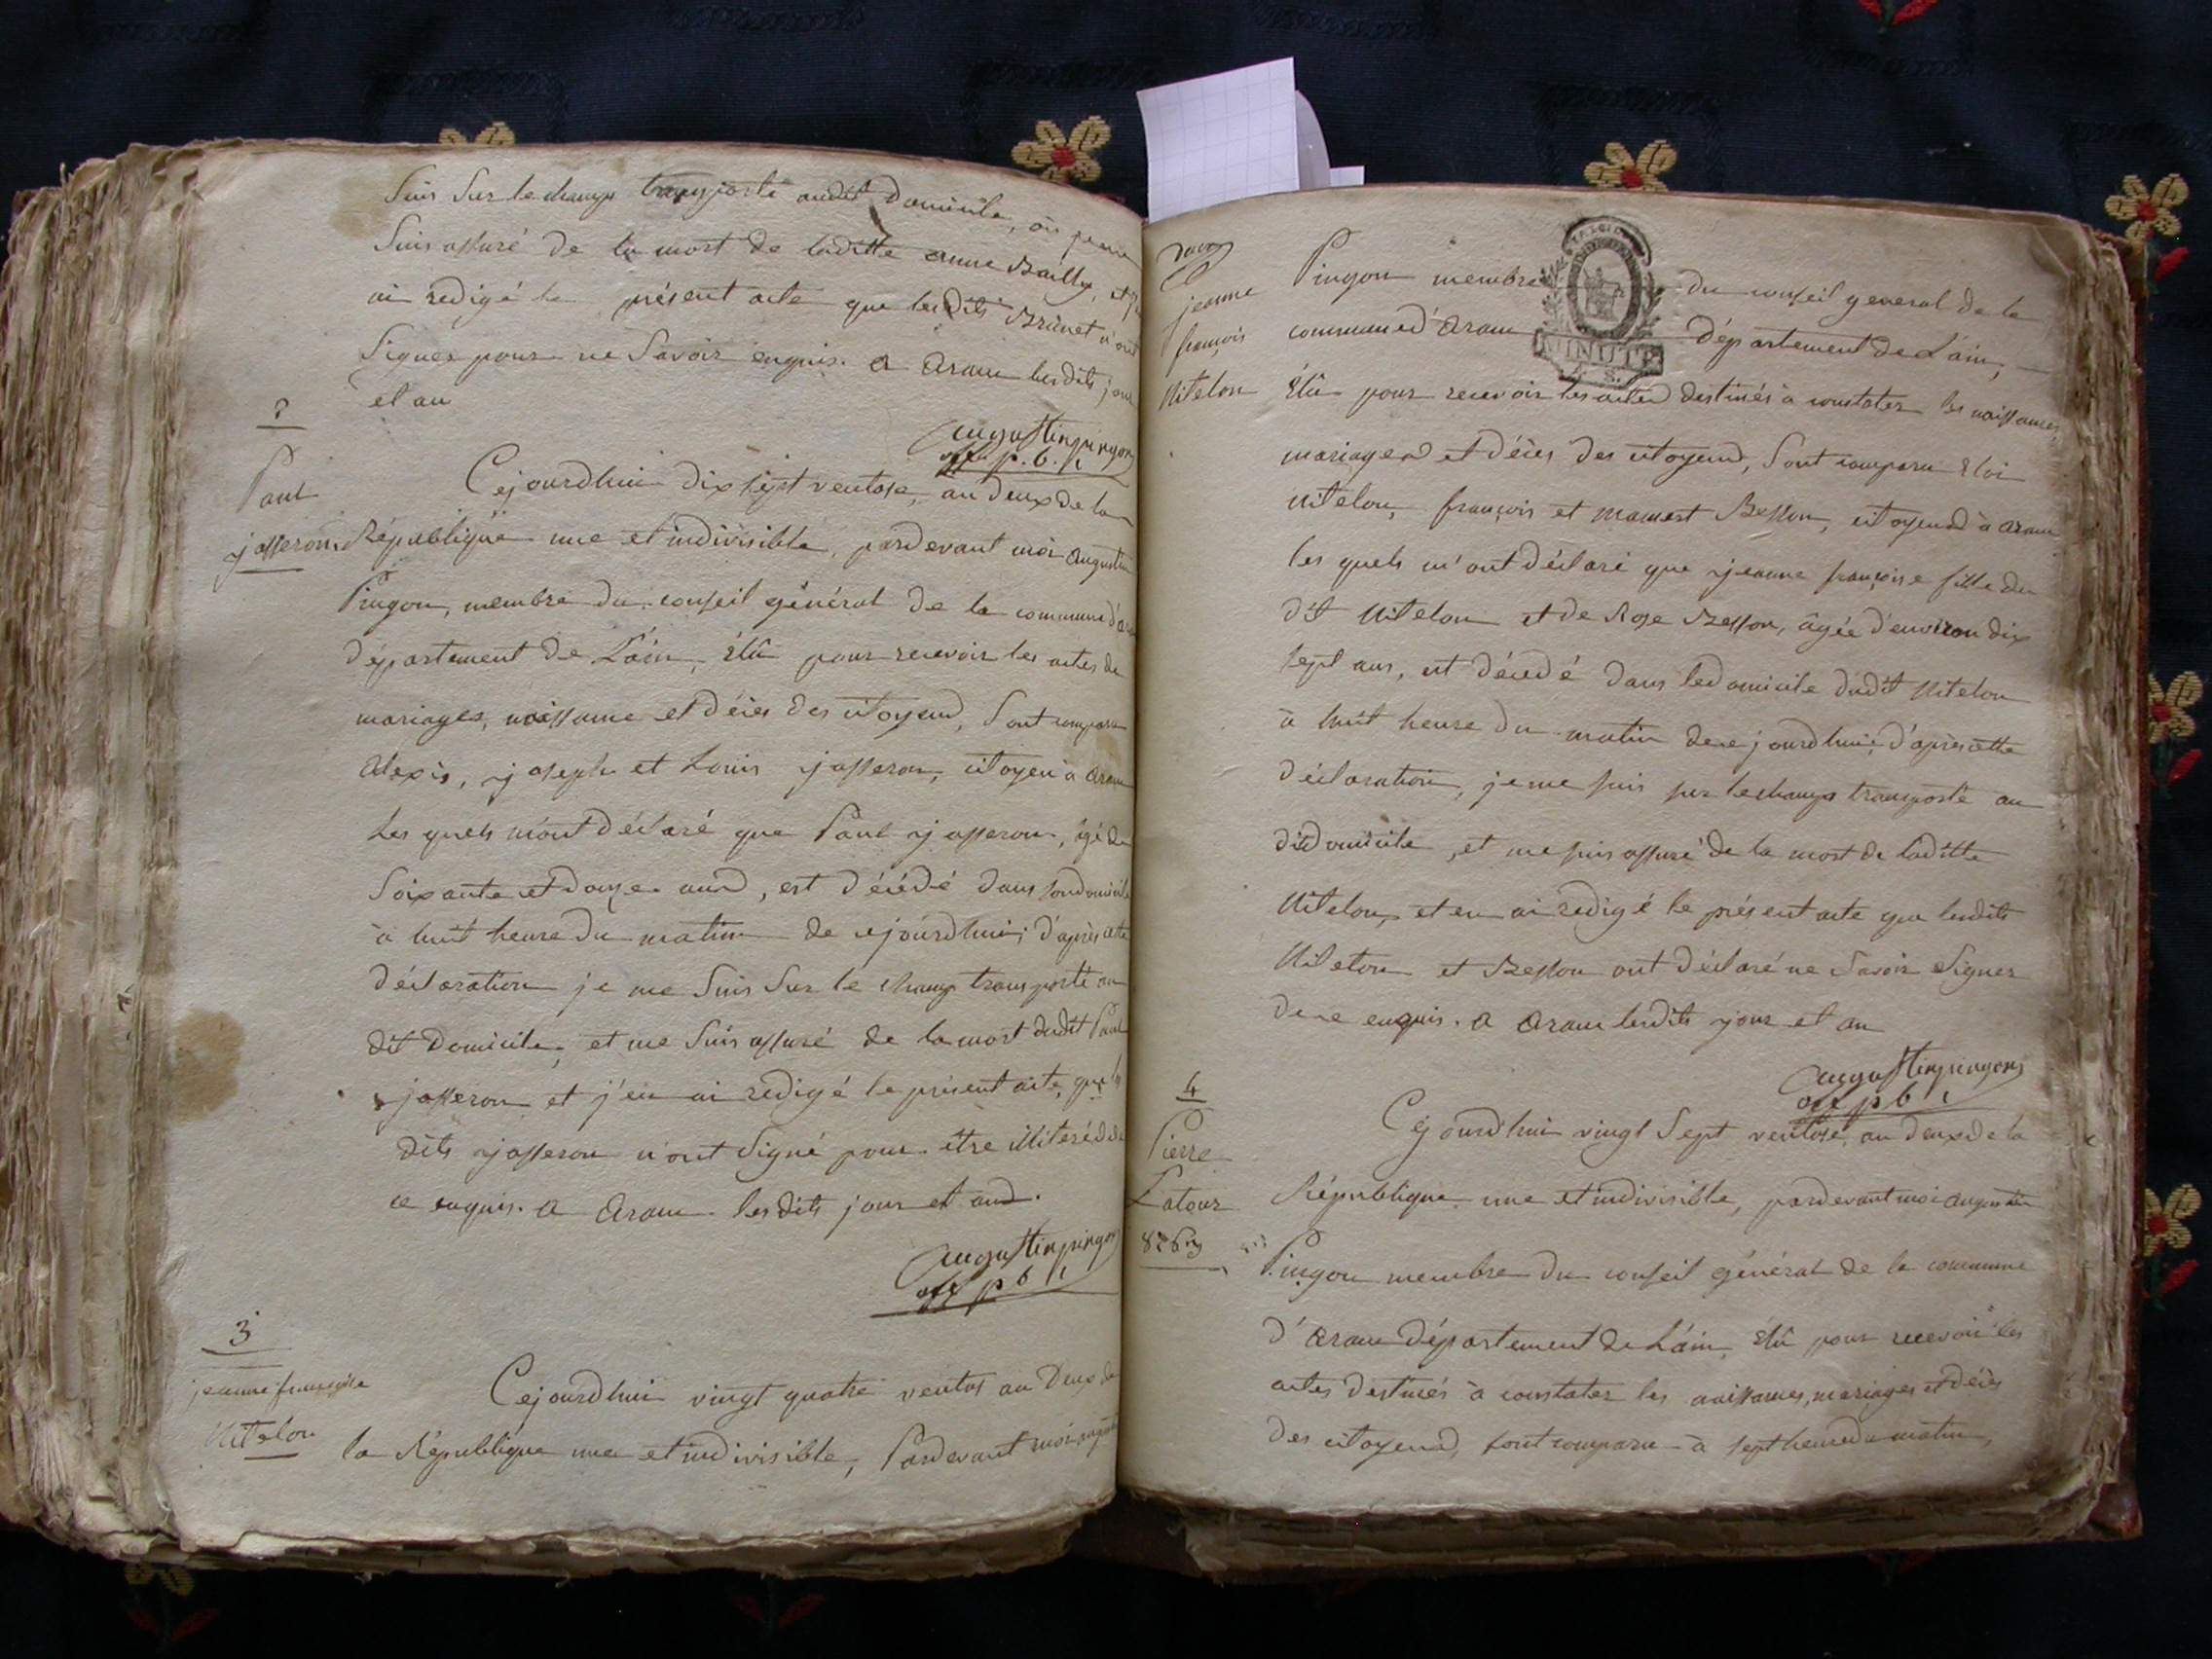 Suis Sur le champ transporté audit Domicile, où je me
Suis assuré de la mort de laditte anne Bailly, et j'en
ai redigé le présent acte que lesdits Brunet n'ont
Signer pour ne Savoir enquis. a aranc lesdits jour
et an
augustin pingon
off p. b. l
2
Paul
josseron
Cejourdhui dix sept ventose, an deux de la
République une et indivisible, pardevant moi augustin
Pingon, membre du conseil général de la commune d'aranc
département de L'ain, Élû pour recevoir les actes de
mariages, naissance et décès des citoyens, Sont comparu
alexis, joseph et Louis josseron, citoyen à aranc
Les quels m'ont déclaré que Paul josseron, âgé de
Soixante et douze ans, est décédé dans son domicile
à huit heure du matin de cejourdhui; d'après cette
déclaration je me Suis Sur le champ transporté au
dit Domicile, et me Suis assuré de la mort dudit Paul
josseron et j'en ai redigé le présent acte, que les
dits josseron n'ont Signé pour être illiteré de
ce enquis. a aranc les dits jour et an.
augustin pingon
off p b l
3
jeanne françoise
Mitelon
Cejourdhui vingt quatre ventos an Deux de
la République une et indivisible, Pardevant moi augustin
jeanne
françois
Mitelon
Pingon membre du conseil general de la
commune d'aranc département de L'ain,
MINUTE
Élû pour recevoir les actes destinés à constater les naissances,
mariages et décès des citoyens, Sont comparu Eloi
Mitelon, françois et mamert Besson, citoyens à aranc
les quels m'ont déclaré que jeanne françoise fille du
dit Mitelon et de Rose Besson, âgée d'environ dix
sept ans, est décedé dans le domicile dudit Mitelon
à huit heure du matin de ce jourdhui, d'après cette
déclaration, je me suis sur le champ transporté au
dit domicile, et me suis assuré de la mort de laditte
Mitelon, et en ai redigé le présent acte que lesdits
Mitelon et Besson ont déclaré ne Savoir Signer
de ce enquis. a aranc lesdits jour et an
augustin pingon
off p b l
4
Pierre
Latour
Cejourdhui vingt Sept ventose, an deux de la
République une et indivisible, pardevant moi augustin
Pingon membre du conseil général de la commune
d'aranc département de L'ain, Élû pour recevoir les
actes destinés à constater les naissances, mariages et décès
des citoyens, sont comparu à sept heure du matin,